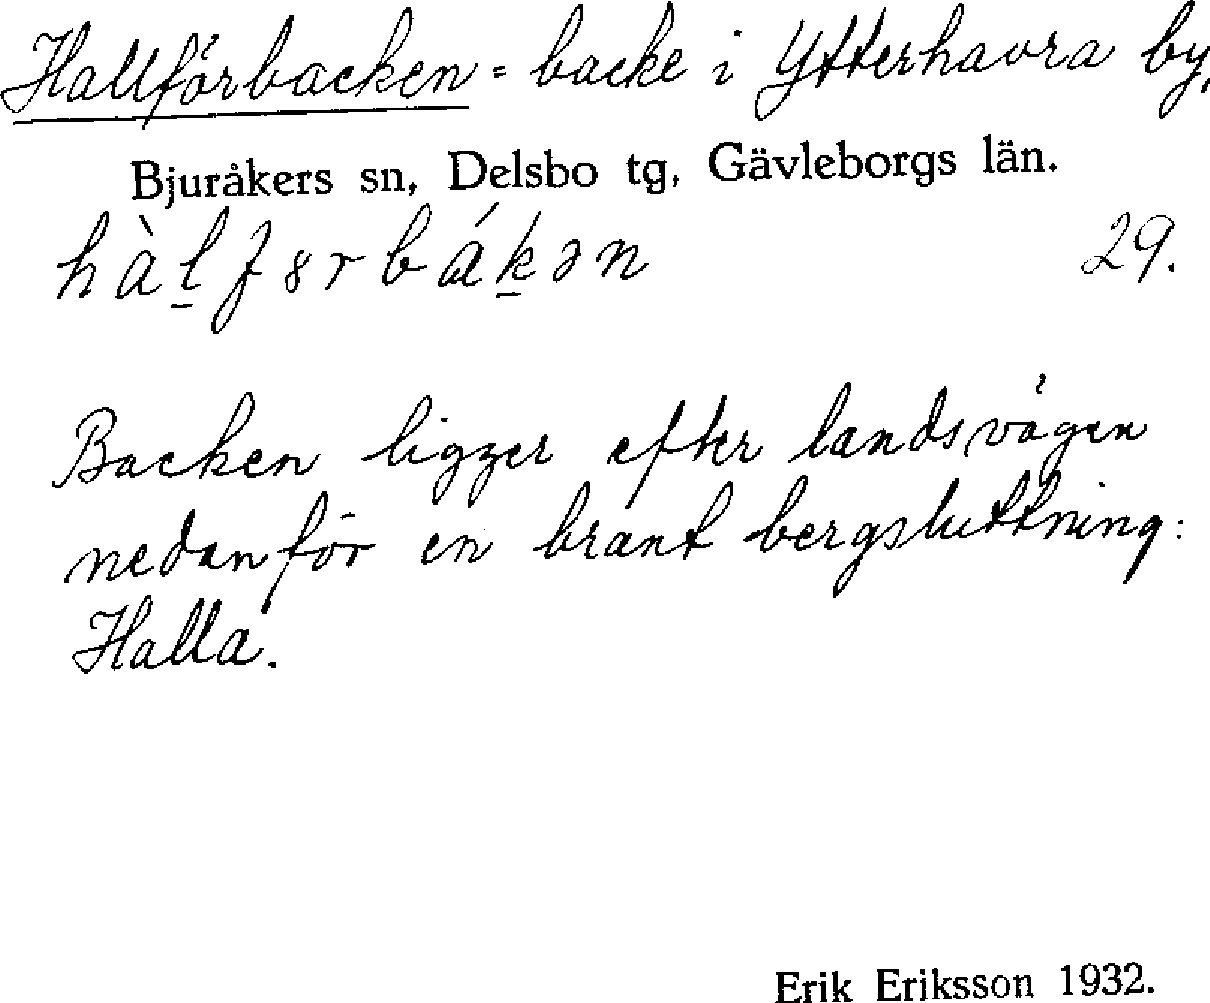 Hallförbacken = backe i Ytterhavra by,
Bjuråkers sn, Delsbo tg, Gävleborgs län.
hàl̠fərbák̠ən 29.
Backen ligger efter landsvägen
nedanför en brant bergsluttning:
Halla.
Erik Eriksson 1932.